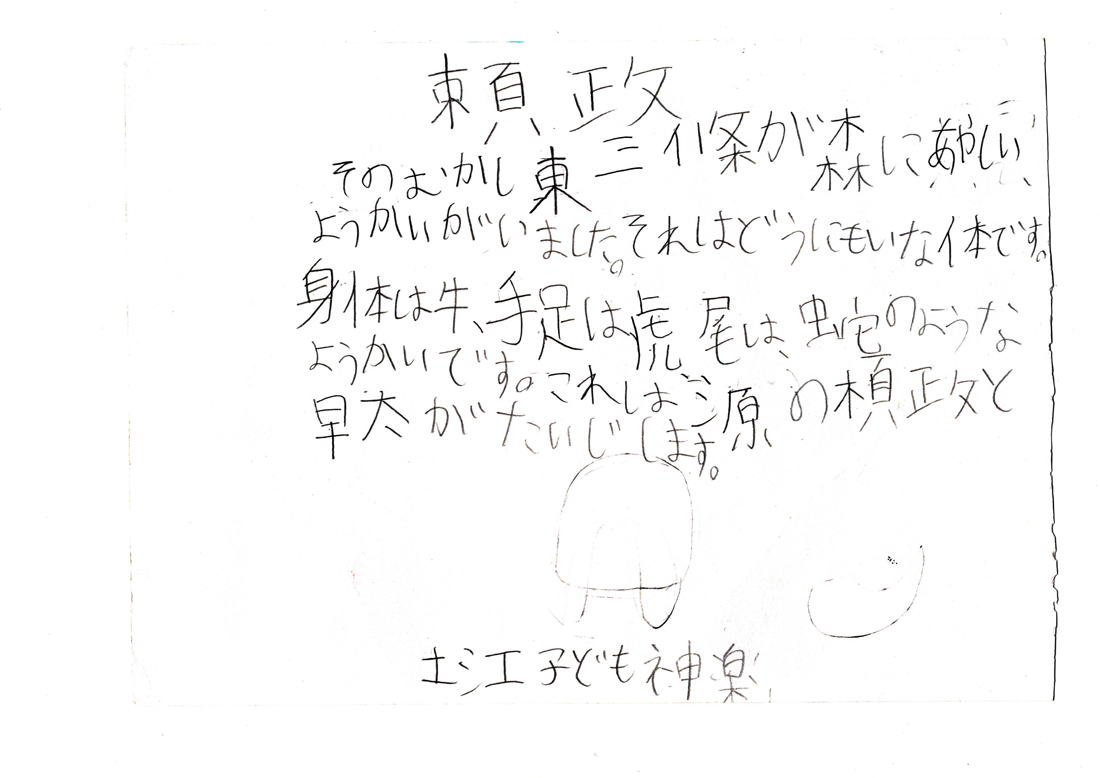 頼政
そのむかし東三条が森にあやしい
ようかいがいました。それはどうにもいな体です。
身体は牛、手足は虎 尾は、蛇のような
ようかいです。これは源の頼政と
早太がたいじします。
土江子ども神楽